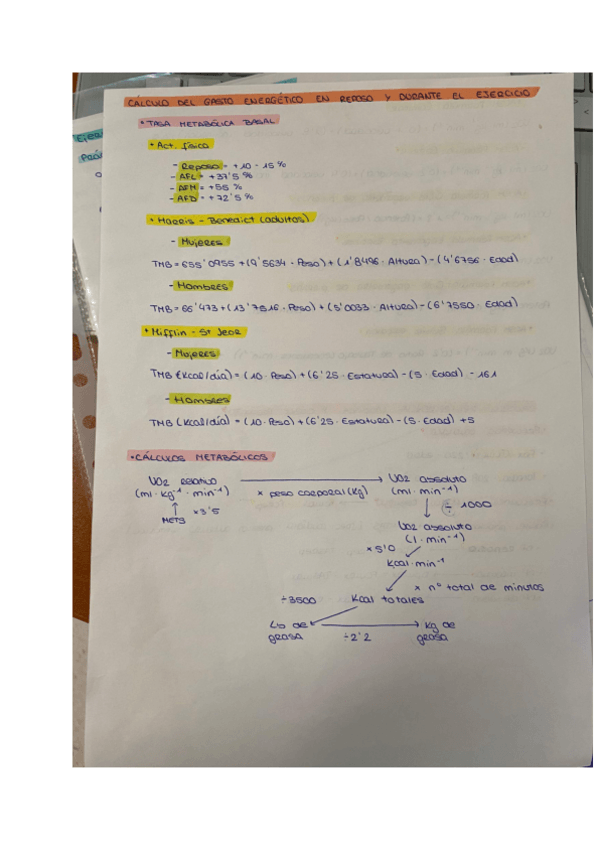 CÁLCULO DEL GASTO ENERGÉTICO EN REPOSO Y DURANTE EL EJERCICIO
• TASA METABÓLICA BASAL
• Act. física
- Reposo = +10 - 15 %
- AFL = +37'5 %
- AFM = +55 %
- AFD = +72'5 %
• Harris - Benedict (adultos)
- Mujeres
TMB = 655'0955 + (9'5634 · Peso) + (1'8496 · Altura) - (4'6756 · Edad)
- Hombres
TMB = 66'473 + (13'7516 · Peso) + (5'0033 · Altura) - (6'7550 · Edad)
• Mifflin - St Jeor
- Mujeres
TMB (Kcal/día) = (10 · Peso) + (6'25 · Estatura) - (5 · Edad) - 161
- Hombres
TMB (Kcal/día) = (10 · Peso) + (6'25 · Estatura) - (5 · Edad) + 5
• CÁLCULOS METABÓLICOS
VO2 relativo → VO2 absoluto
(ml · kg⁻¹ · min⁻¹) × peso corporal (kg) (ml · min⁻¹)
↑ ×3'5 ↓ ÷ 1000
METS
VO2 absoluto
(l · min⁻¹)
×5'0
Kcal · min⁻¹
× nº total de minutos
÷3500 Kcal totales
Lb de → kg de
grasa ÷2'2 grasa